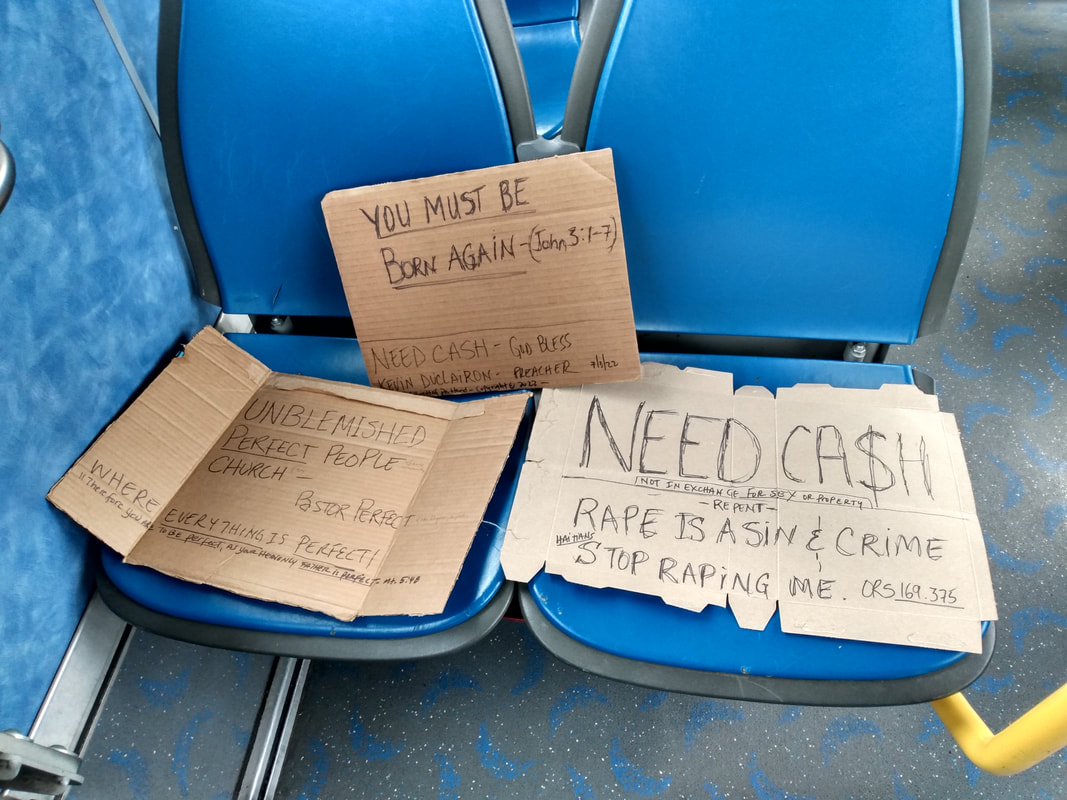 YOU MUST BE
BORN AGAIN - (John, 3:1-7)
NEED CASH - GOD BLESS
KEVIN DUCLAIRON - PREACHER 7/13/22
Copyright © 2022 -
UNBLEMISHED
PERFECT PEOPLE
CHURCH -
PASTOR PERFECT
WHERE
EVERYTHING IS PERFECT!
"Therefore you are
TO BE PERFECT, AS YOUR HEAVENLY FATHER IS PERFECT. Mt. 5:48
NEED CA$H
NOT IN EXCHANGE FOR SEX OR PROPERTY
- REPENT -
RAPE IS A SIN & CRIME
HAITIANS
STOP RAPING ME. ORS 169.375